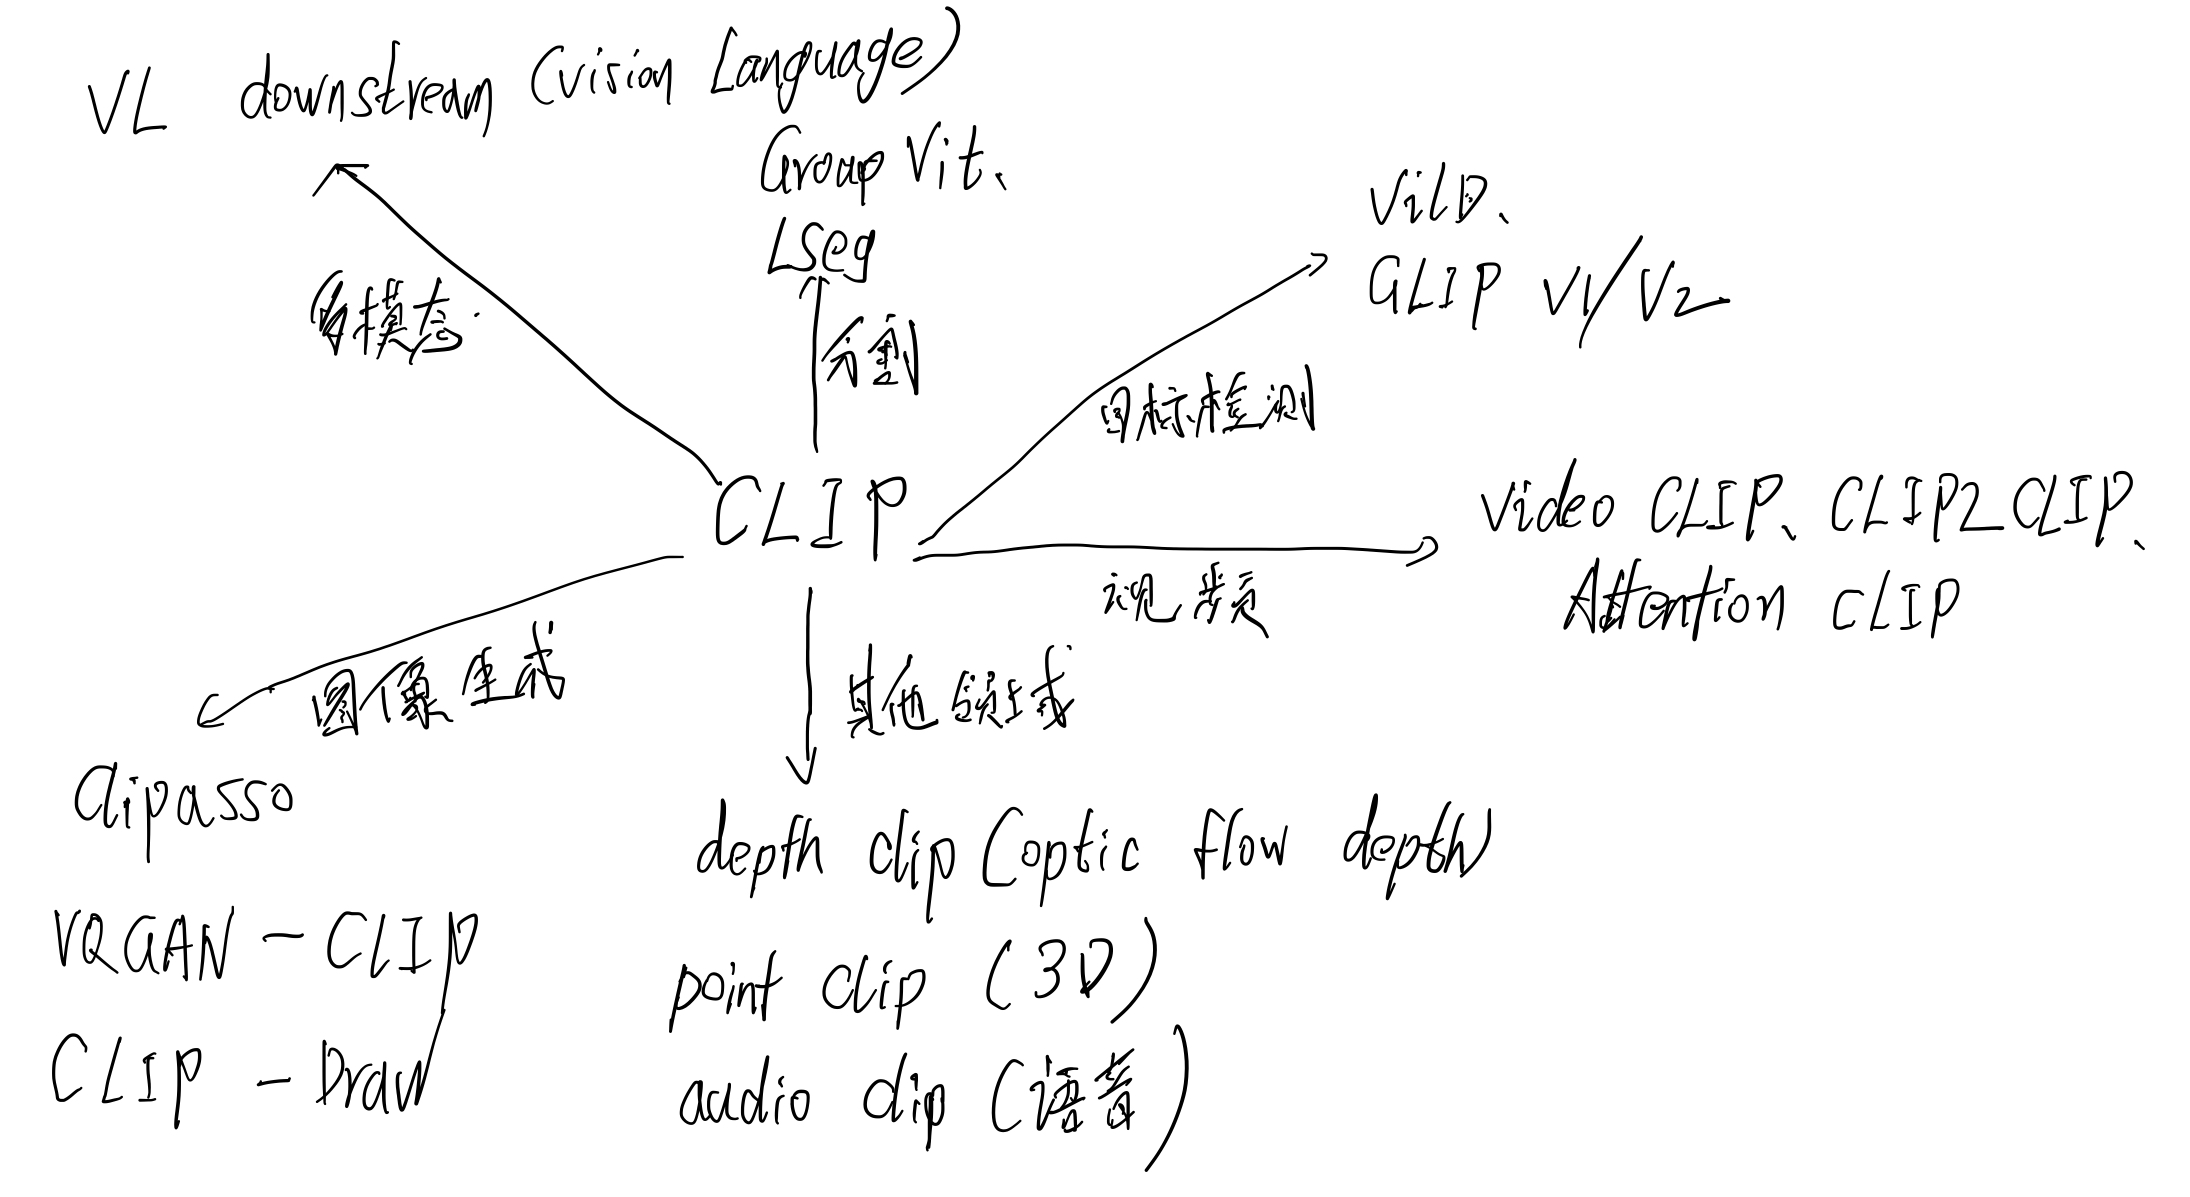 VL downstream (vision Language)
Group Vit、
Lseg
ViLD、
GLIP V1/V2
多模态
分割
目标检测
CLIP
Video CLIP、CLIP2CLIP、
Attention CLIP
视频
图像生成
其他领域
Clipasso
VQGAN-CLIP
CLIP-Draw
depth clip (optic flow depth)
point clip (3D)
audio clip (语音)